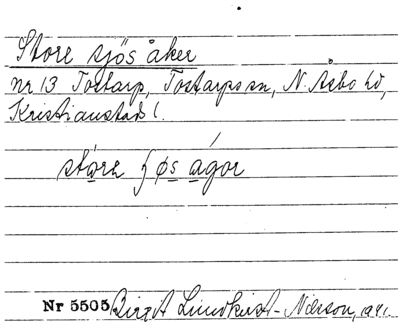 Store sjös åker
nr 13 Tostarp, Tostarps sn, N. Åsbo hd,
Kristianstad l.
stǻre ʃøs ågor
Nr 5505 Birgit Lindkvist-Nilsson, 1941.